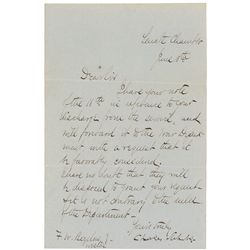 Senate Chamber
June 8th
Dear Sir
I have your note
of the 11th in reference to your
discharge from the service, and
will forward it to the War Depart-
ment with a request that it
be favorably considered.
I have no doubt that they will
be disposed to grant your request
if it is not contrary to the rules
of the Department.
Yours truly
Charles
F. W.